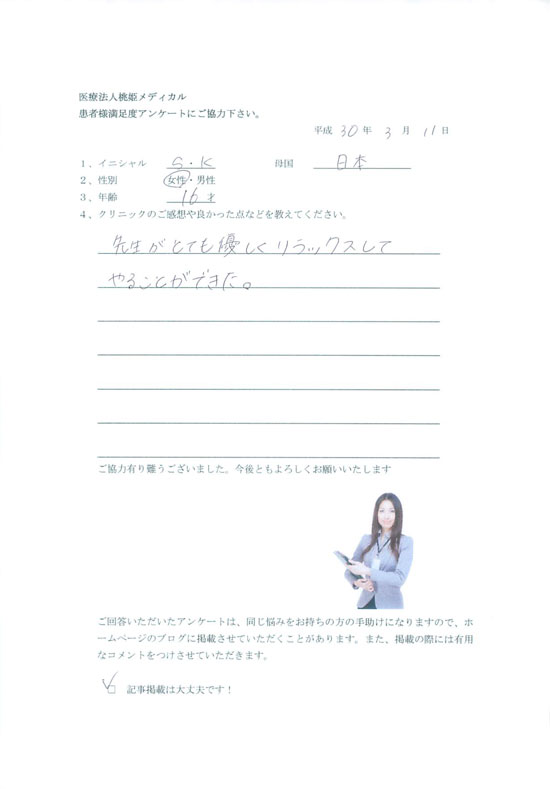 医療法人桃姫メディカル
患者様満足度アンケートにご協力下さい。
平成 30 年 3 月 11 日
1、イニシャル S・K 母国 日本
2、性別 女性・男性
3、年齢 16才
4、クリニックのご感想や良かった点などを教えてください。
先生がとても優しくリラックスして
やることができた。
ご協力有り難うございました。今後ともよろしくお願いいたします
ご回答いただいたアンケートは、同じ悩みをお持ちの方の手助けになりますので、ホ
ームページのブログに掲載させていただくことがあります。また、掲載の際には有用
なコメントをつけさせていただきます。
☑ 記事掲載は大丈夫です！